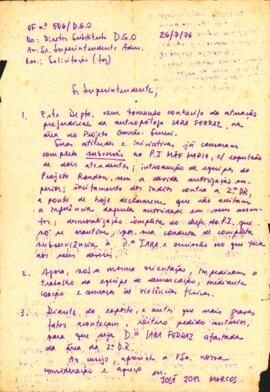 OF nº 506/D.G.O
26/7/76
Do: Diretor Substituto D.G.O
Ao: Sr. Superintendente Adm.
Ref: Solicitação (faz)
Sr. Superintendente,
1. Este Depto. vem tomando conhecimento da atuação
prejudicial da antropóloga IARA FERRAZ, na
área do Projeto Gavião-Suruí.
Suas atitudes e iniciativas, já causaram
completa subversão no P.I MÃE MARIA, c/ expulsão
de dois atendentes; introdução de equipes do
Projeto Rondon, sem a devida autorização su-
perior; incitamento dos índios contra a 2ª DR,
a ponto de hoje declararem que não aceitam
a ingerência daquela autoridade em seus assun-
tos; desmoralização completa do chefe do P.I, que
só se mantém, por sua conduta de completa
subserviência à Dª IARA e omissão no que toca
aos seus deveres.
2. Agora, sob a mesma orientação, impediram o
trabalho da equipe de demarcação, mediante
coação e ameaça de violência física.
3. Diante do exposto, e antes que mais graves
fatos aconteçam, reitero pedidos anteriores,
para que seja Dª IARA FERRAZ afastada
da área da 2ª D.R.
Ao ensejo, apresento a VSa. nossa
consideração e apreço
JOSÉ JOEL MARCOS